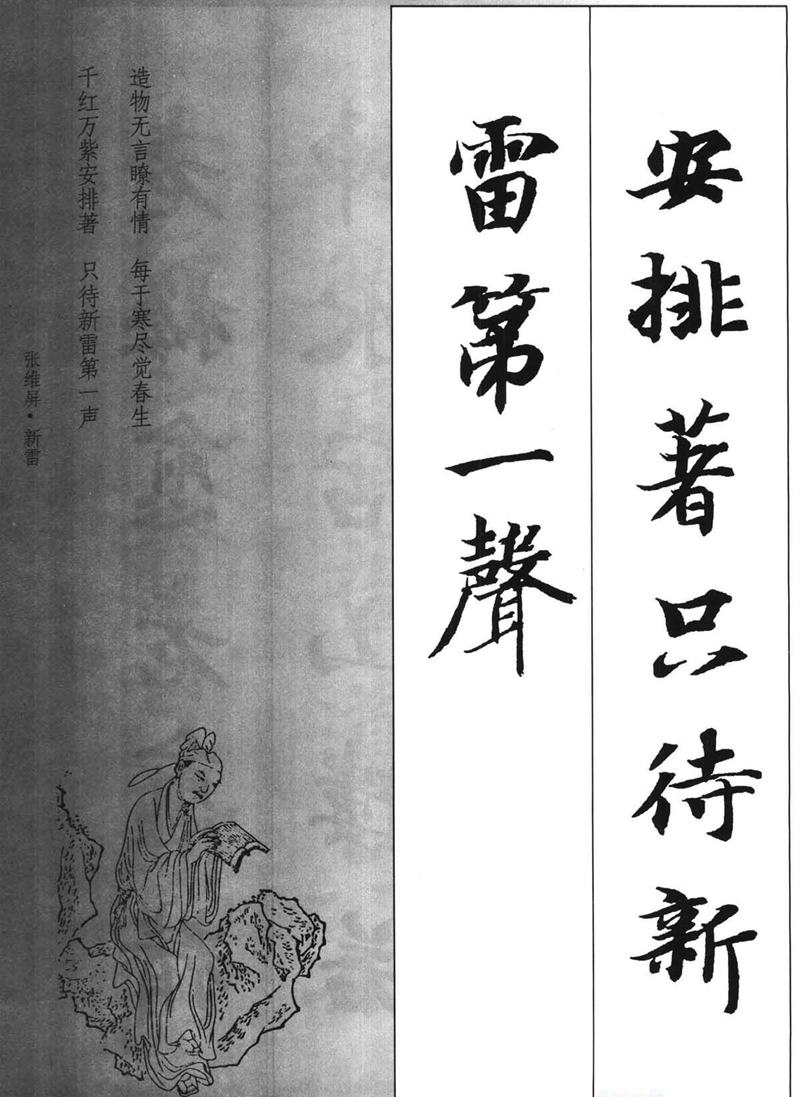 安排著只待新
雷第一聲
造物无言瞭有情　每于寒尽觉春生
千红万紫安排著　只待新雷第一声
张维屏·新雷